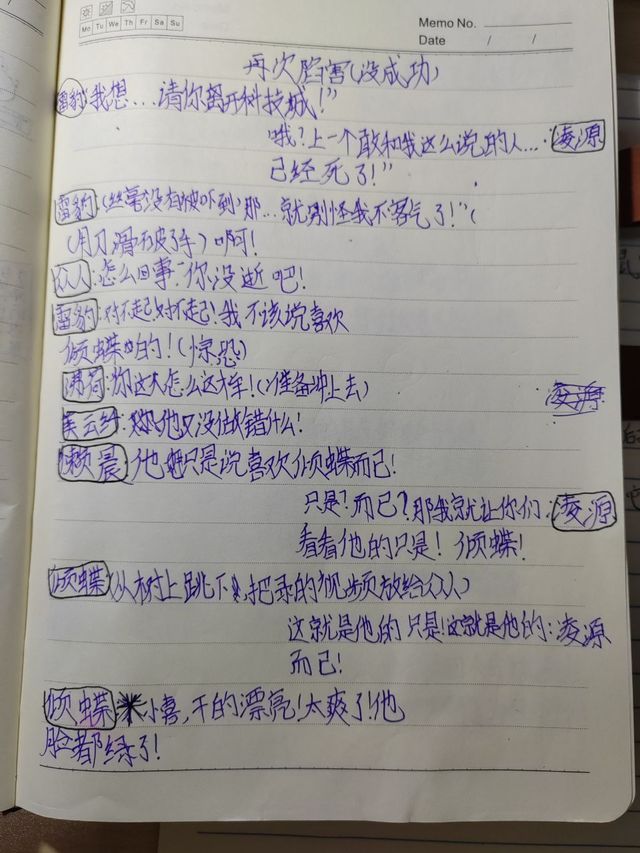 Mo Tu We Th Fr Sa Su
Memo No.
Date / /
再次陷害(没成功)
雷豹"我想...请你离开科技城!"
哦?上一个敢和我这么说的人...:凌源
已经死了!"
雷豹(丝毫没有被吓到)那...就别怪我不客气了!"(
(用刀滑破了手)啊!
众人:怎么回事"你没逝吧!
雷豹:对不起对不起!我不该说喜欢
倾蝶的!(惊恐)
你这人怎么这样!(准备冲上去)
凌源
他又没做错什么!
晨 他只是说喜欢倾蝶而已!
只是?而已?那我就让你们:凌源
看看他的只是!倾蝶!
倾蝶(从树上跳下,把录的视频放给众人)
这就是他的只是!这就是他的:凌源
而已!
倾蝶 小喜,干的漂亮!太爽了!他
脸都绿了!